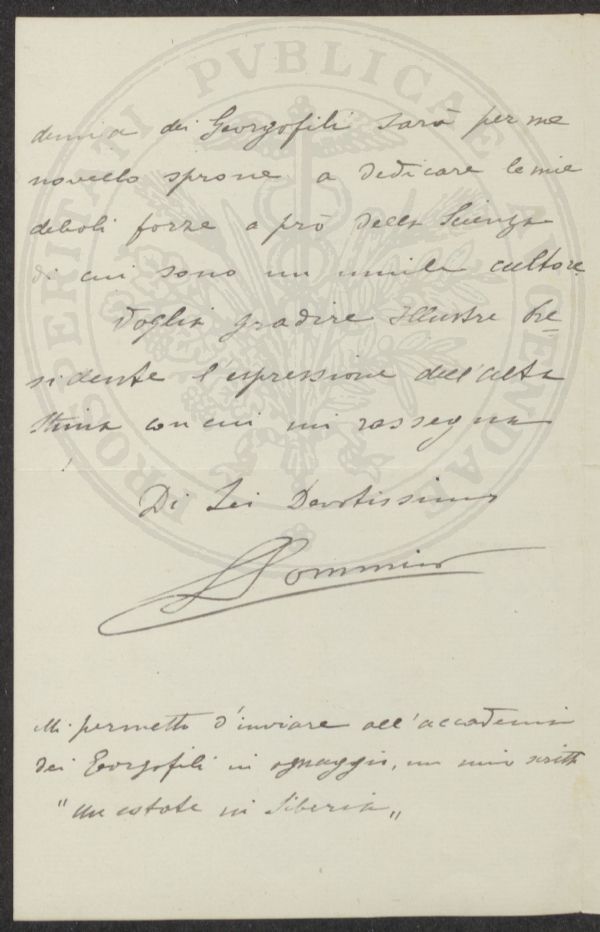 PROSPERITATI PVBLICAE AVGENDAE
demia dei Georgofili sarà per me
novello sprone a dedicare le mie
deboli forze a prò della Scienza
di cui sono un umile cultore
Voglia gradire Illustre Pre=
sidente l'espressione dell'alta
stima con cui mi rassegno
Di Lei Devotissimo
S Sommier
Mi permetto d'inviare all'accademia
dei Georgofili in omaggio, un mio scritto
"Un estate in Siberia"